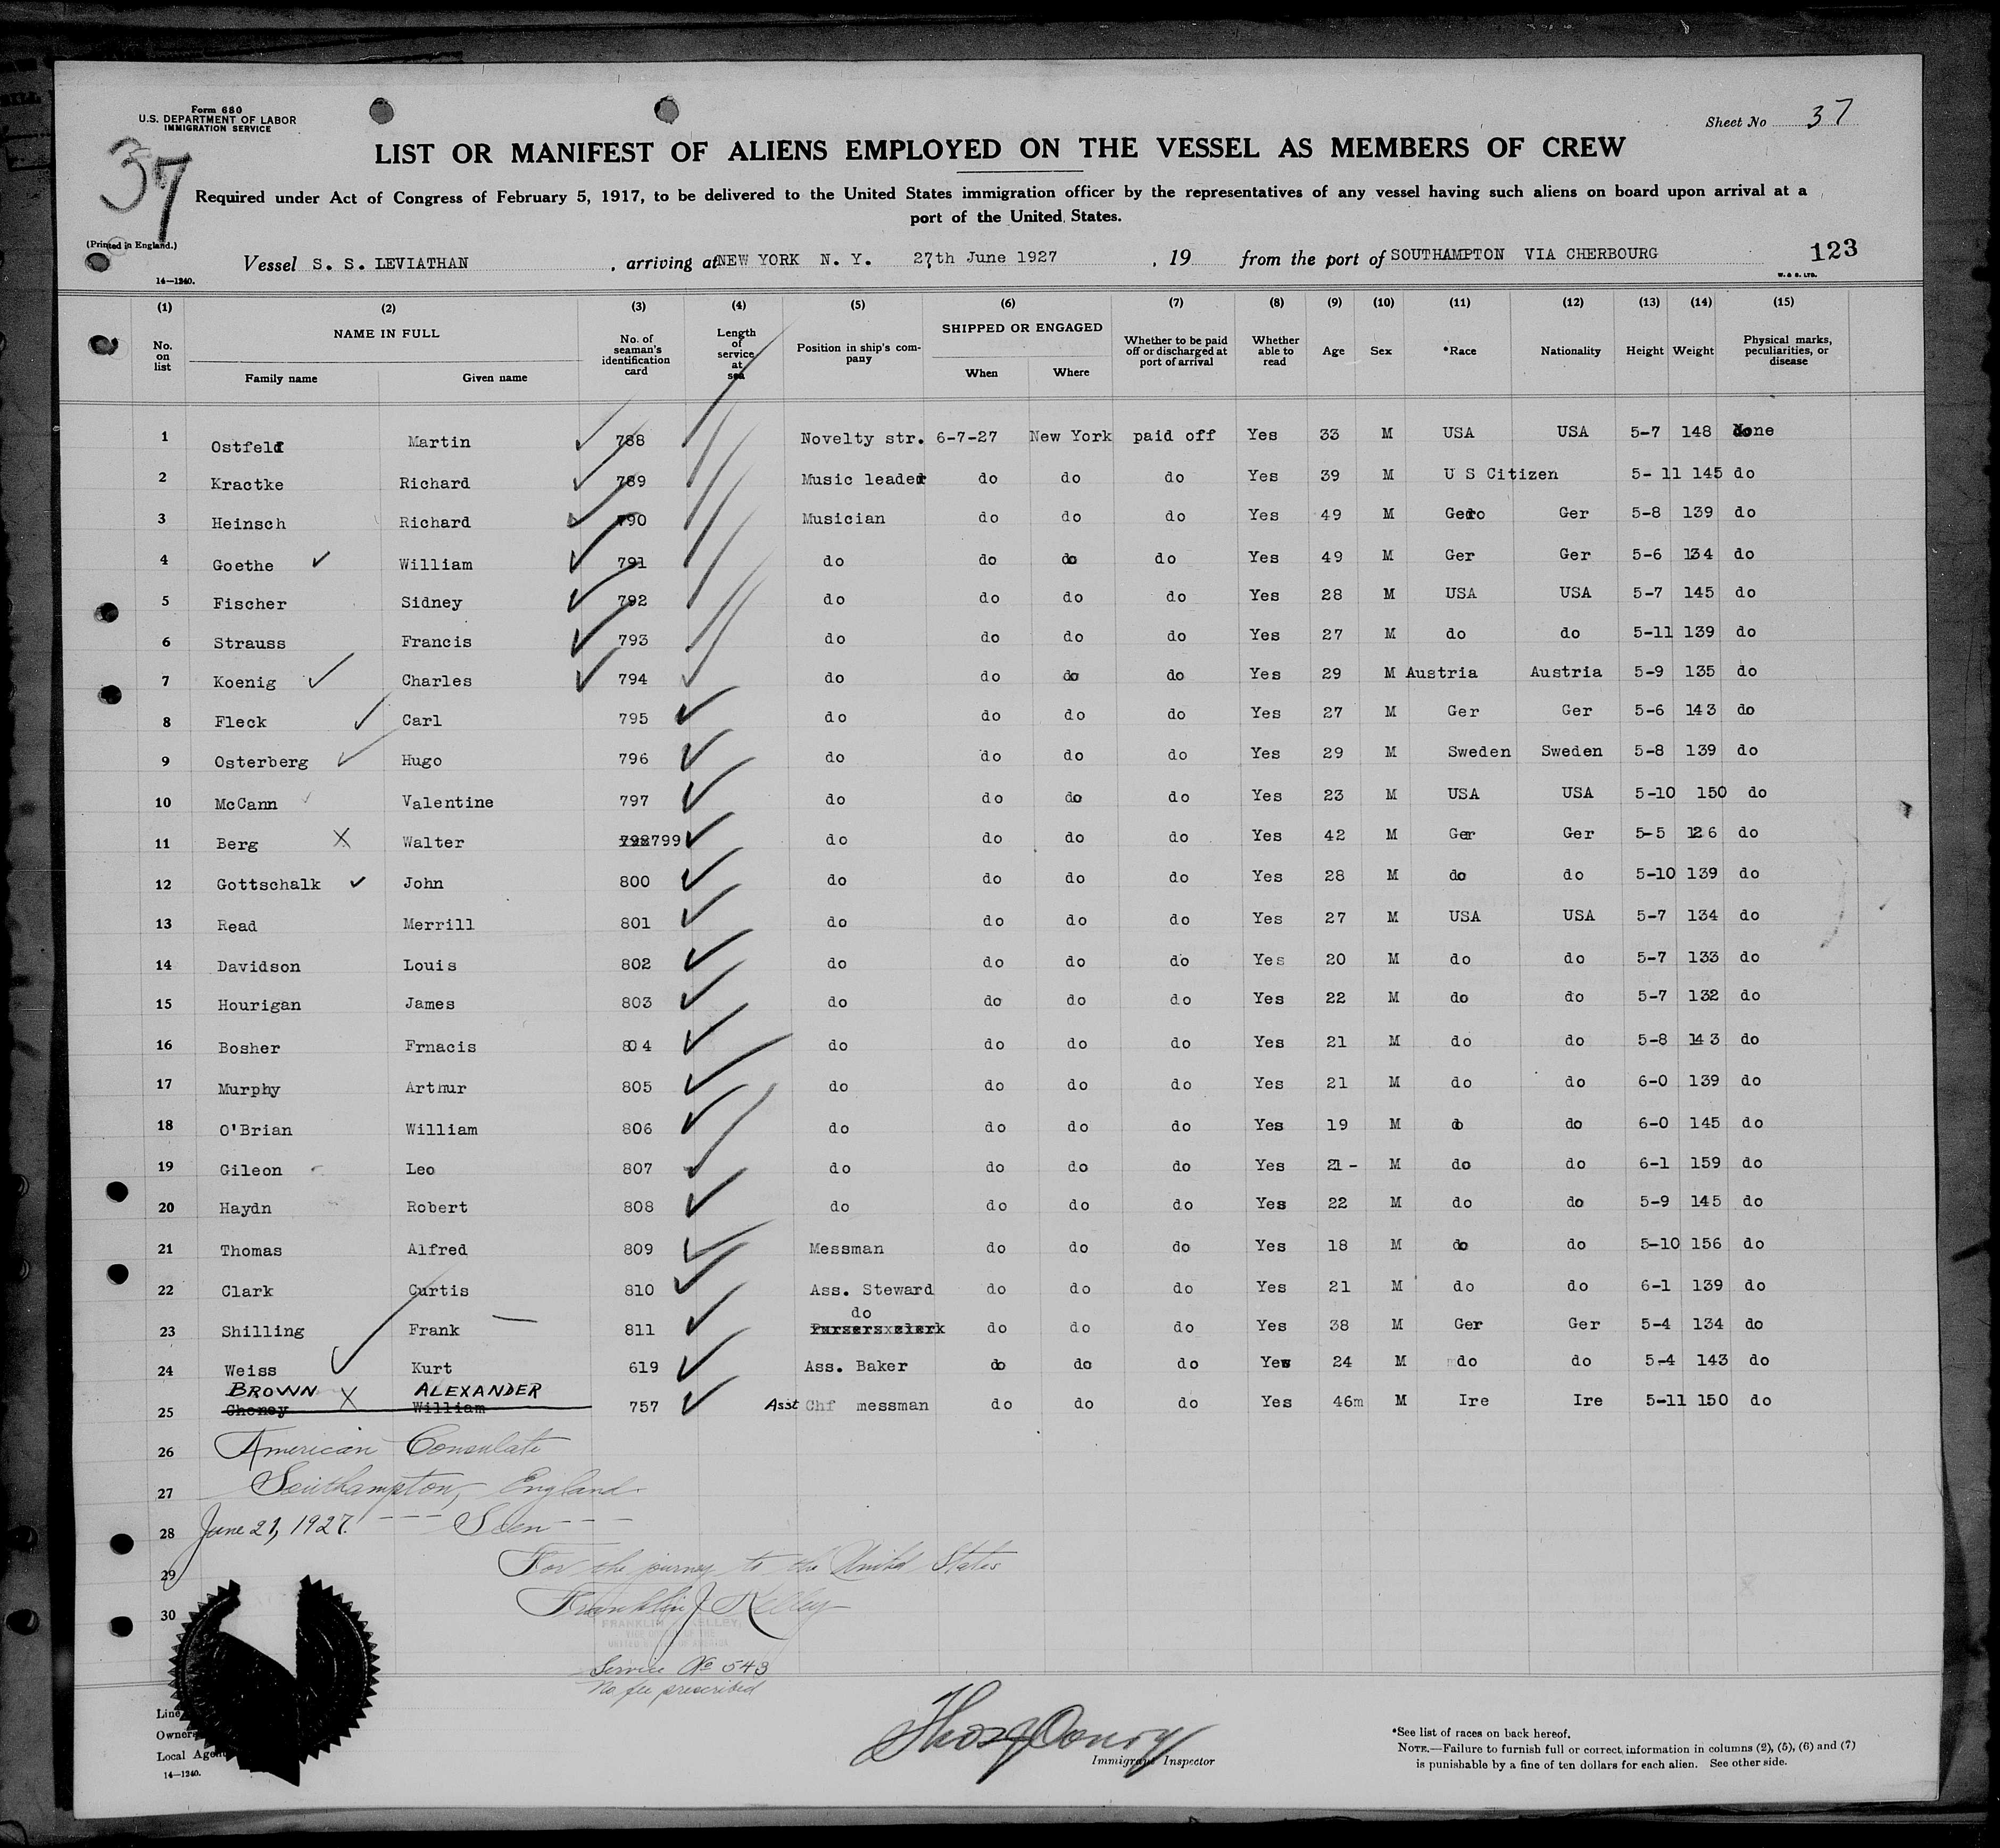 Form 680
U.S. DEPARTMENT OF LABOR
IMMIGRATION SERVICE
Sheet No 37
37
LIST OR MANIFEST OF ALIENS EMPLOYED ON THE VESSEL AS MEMBERS OF CREW
Required under Act of Congress of February 5, 1917, to be delivered to the United States immigration officer by the representatives of any vessel having such aliens on board upon arrival at a
port of the United States.
(Printed in England.)
Vessel S. S. LEVIATHAN , arriving at NEW YORK N. Y. 27th June 1927 , 19 from the port of SOUTHAMPTON VIA CHERBOURG 123
14—1240. W. & S. LTD.
(1) (2) (3) (4) (5) (6) (7) (8) (9) (10) (11) (12) (13) (14) (15)
No. on list NAME IN FULL Family name Given name No. of seaman's identification card Length of service at sea Position in ship's company SHIPPED OR ENGAGED When Where Whether to be paid off or discharged at port of arrival Whether able to read Age Sex *Race Nationality Height Weight Physical marks, peculiarities, or disease
1 Ostfeld Martin 788 Novelty str. 6-7-27 New York paid off Yes 33 M USA USA 5-7 148 None
2 Kractke Richard 789 Music leader do do do Yes 39 M U S Citizen 5- 11 145 do
3 Heinsch Richard 790 Musician do do do Yes 49 M Ger Ger 5-8 139 do
4 Goethe William 791 do do do do Yes 49 M Ger Ger 5-6 134 do
5 Fischer Sidney 792 do do do do Yes 28 M USA USA 5-7 145 do
6 Strauss Francis 793 do do do do Yes 27 M do do 5-11 139 do
7 Koenig Charles 794 do do do do Yes 29 M Austria Austria 5-9 135 do
8 Fleck Carl 795 do do do do Yes 27 M Ger Ger 5-6 143 do
9 Osterberg Hugo 796 do do do do Yes 29 M Sweden Sweden 5-8 139 do
10 McCann Valentine 797 do do do do Yes 23 M USA USA 5-10 150 do
11 Berg X Walter 798799 do do do do Yes 42 M Ger Ger 5-5 126 do
12 Gottschalk John 800 do do do do Yes 28 M do do 5-10 139 do
13 Read Merrill 801 do do do do Yes 27 M USA USA 5-7 134 do
14 Davidson Louis 802 do do do do Yes 20 M do do 5-7 133 do
15 Hourigan James 803 do do do do Yes 22 M do do 5-7 132 do
16 Bosher Frnacis 804 do do do do Yes 21 M do do 5-8 143 do
17 Murphy Arthur 805 do do do do Yes 21 M do do 6-0 139 do
18 O'Brian William 806 do do do do Yes 19 M do do 6-0 145 do
19 Gileon Leo 807 do do do do Yes 21 - M do do 6-1 159 do
20 Haydn Robert 808 do do do do Yes 22 M do do 5-9 145 do
21 Thomas Alfred 809 Messman do do do Yes 18 M do do 5-10 156 do
22 Clark Curtis 810 Ass. Steward do do do Yes 21 M do do 6-1 139 do
do
23 Shilling Frank 811 Pursers clerk do do do Yes 38 M Ger Ger 5-4 134 do
24 Weiss Kurt 619 Ass. Baker do do do Yes 24 M do do 5-4 143 do
BROWN X ALEXANDER
25 Choney William 757 Asst Chf messman do do do Yes 46m M Ire Ire 5-11 150 do
26 American Consulate
27 Southampton, England.
28 June 21, 1927. --- Seen ---
29 For the journey to the United States
30 Franklin J Kelley
FRANKLIN J. KELLEY,
VICE CONSUL OF THE
UNITED STATES OF AMERICA
Service No 543
No fee prescribed
Line
Owners
Local Agents
14—1240.
Immigrant Inspector
*See list of races on back hereof.
NOTE.—Failure to furnish full or correct information in columns (2), (5), (6) and (7)
is punishable by a fine of ten dollars for each alien. See other side.